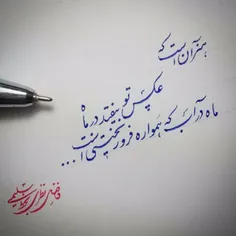 هنر آن است که
عکس تو بیفتد در ماه
ماه در آب که همواره فروریختنی است ...